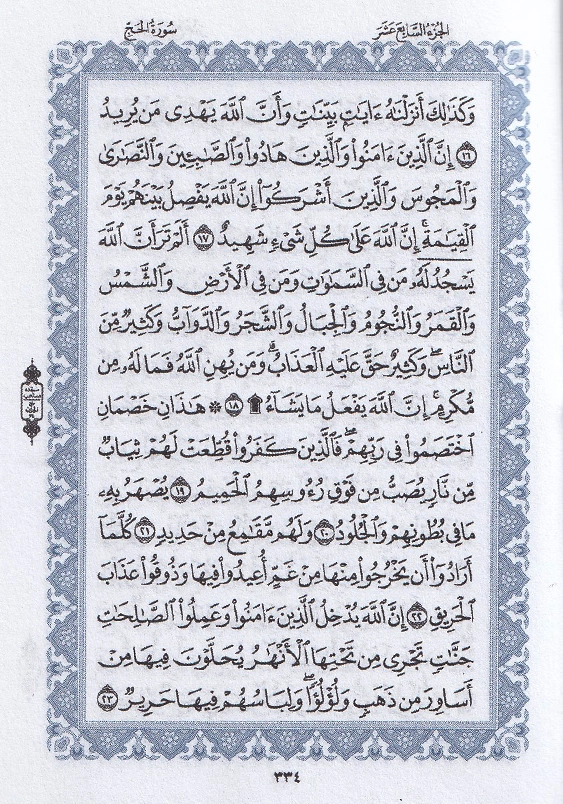 الجزء السابع عشر
سورة الحج
وَكَذَٰلِكَ أَنزَلْنَٰهُ ءَايَٰتٍۭ بَيِّنَٰتٍ وَأَنَّ ٱللَّهَ يَهْدِى مَن يُرِيدُ
١٦ إِنَّ ٱلَّذِينَ ءَامَنُوا۟ وَٱلَّذِينَ هَادُوا۟ وَٱلصَّٰبِـِٔينَ وَٱلنَّصَٰرَىٰ
وَٱلْمَجُوسَ وَٱلَّذِينَ أَشْرَكُوٓا۟ إِنَّ ٱللَّهَ يَفْصِلُ بَيْنَهُمْ يَوْمَ
ٱلْقِيَٰمَةِ ۚ إِنَّ ٱللَّهَ عَلَىٰ كُلِّ شَىْءٍ شَهِيدٌ ١٧ أَلَمْ تَرَ أَنَّ ٱللَّهَ
يَسْجُدُ لَهُۥ مَن فِى ٱلسَّمَٰوَٰتِ وَمَن فِى ٱلْأَرْضِ وَٱلشَّمْسُ
وَٱلْقَمَرُ وَٱلنُّجُومُ وَٱلْجِبَالُ وَٱلشَّجَرُ وَٱلدَّوَآبُّ وَكَثِيرٌ مِّنَ
ٱلنَّاسِ ۖ وَكَثِيرٌ حَقَّ عَلَيْهِ ٱلْعَذَابُ ۗ وَمَن يُهِنِ ٱللَّهُ فَمَا لَهُۥ مِن
مُّكْرِمٍ ۚ إِنَّ ٱللَّهَ يَفْعَلُ مَا يَشَآءُ ۩ ١٨ ۞ هَٰذَانِ خَصْمَانِ
ٱخْتَصَمُوا۟ فِى رَبِّهِمْ ۖ فَٱلَّذِينَ كَفَرُوا۟ قُطِّعَتْ لَهُمْ ثِيَابٌ
مِّن نَّارٍ يُصَبُّ مِن فَوْقِ رُءُوسِهِمُ ٱلْحَمِيمُ ١٩ يُصْهَرُ بِهِۦ
مَا فِى بُطُونِهِمْ وَٱلْجُلُودُ ٢٠ وَلَهُم مَّقَٰمِعُ مِنْ حَدِيدٍ ٢١ كُلَّمَآ
أَرَادُوٓا۟ أَن يَخْرُجُوا۟ مِنْهَا مِنْ غَمٍّ أُعِيدُوا۟ فِيهَا وَذُوقُوا۟ عَذَابَ
ٱلْحَرِيقِ ٢٢ إِنَّ ٱللَّهَ يُدْخِلُ ٱلَّذِينَ ءَامَنُوا۟ وَعَمِلُوا۟ ٱلصَّٰلِحَٰتِ
جَنَّٰتٍ تَجْرِى مِن تَحْتِهَا ٱلْأَنْهَٰرُ يُحَلَّوْنَ فِيهَا مِنْ
أَسَاوِرَ مِن ذَهَبٍ وَلُؤْلُؤًا ۖ وَلِبَاسُهُمْ فِيهَا حَرِيرٌ ٢٣
٣٣٤